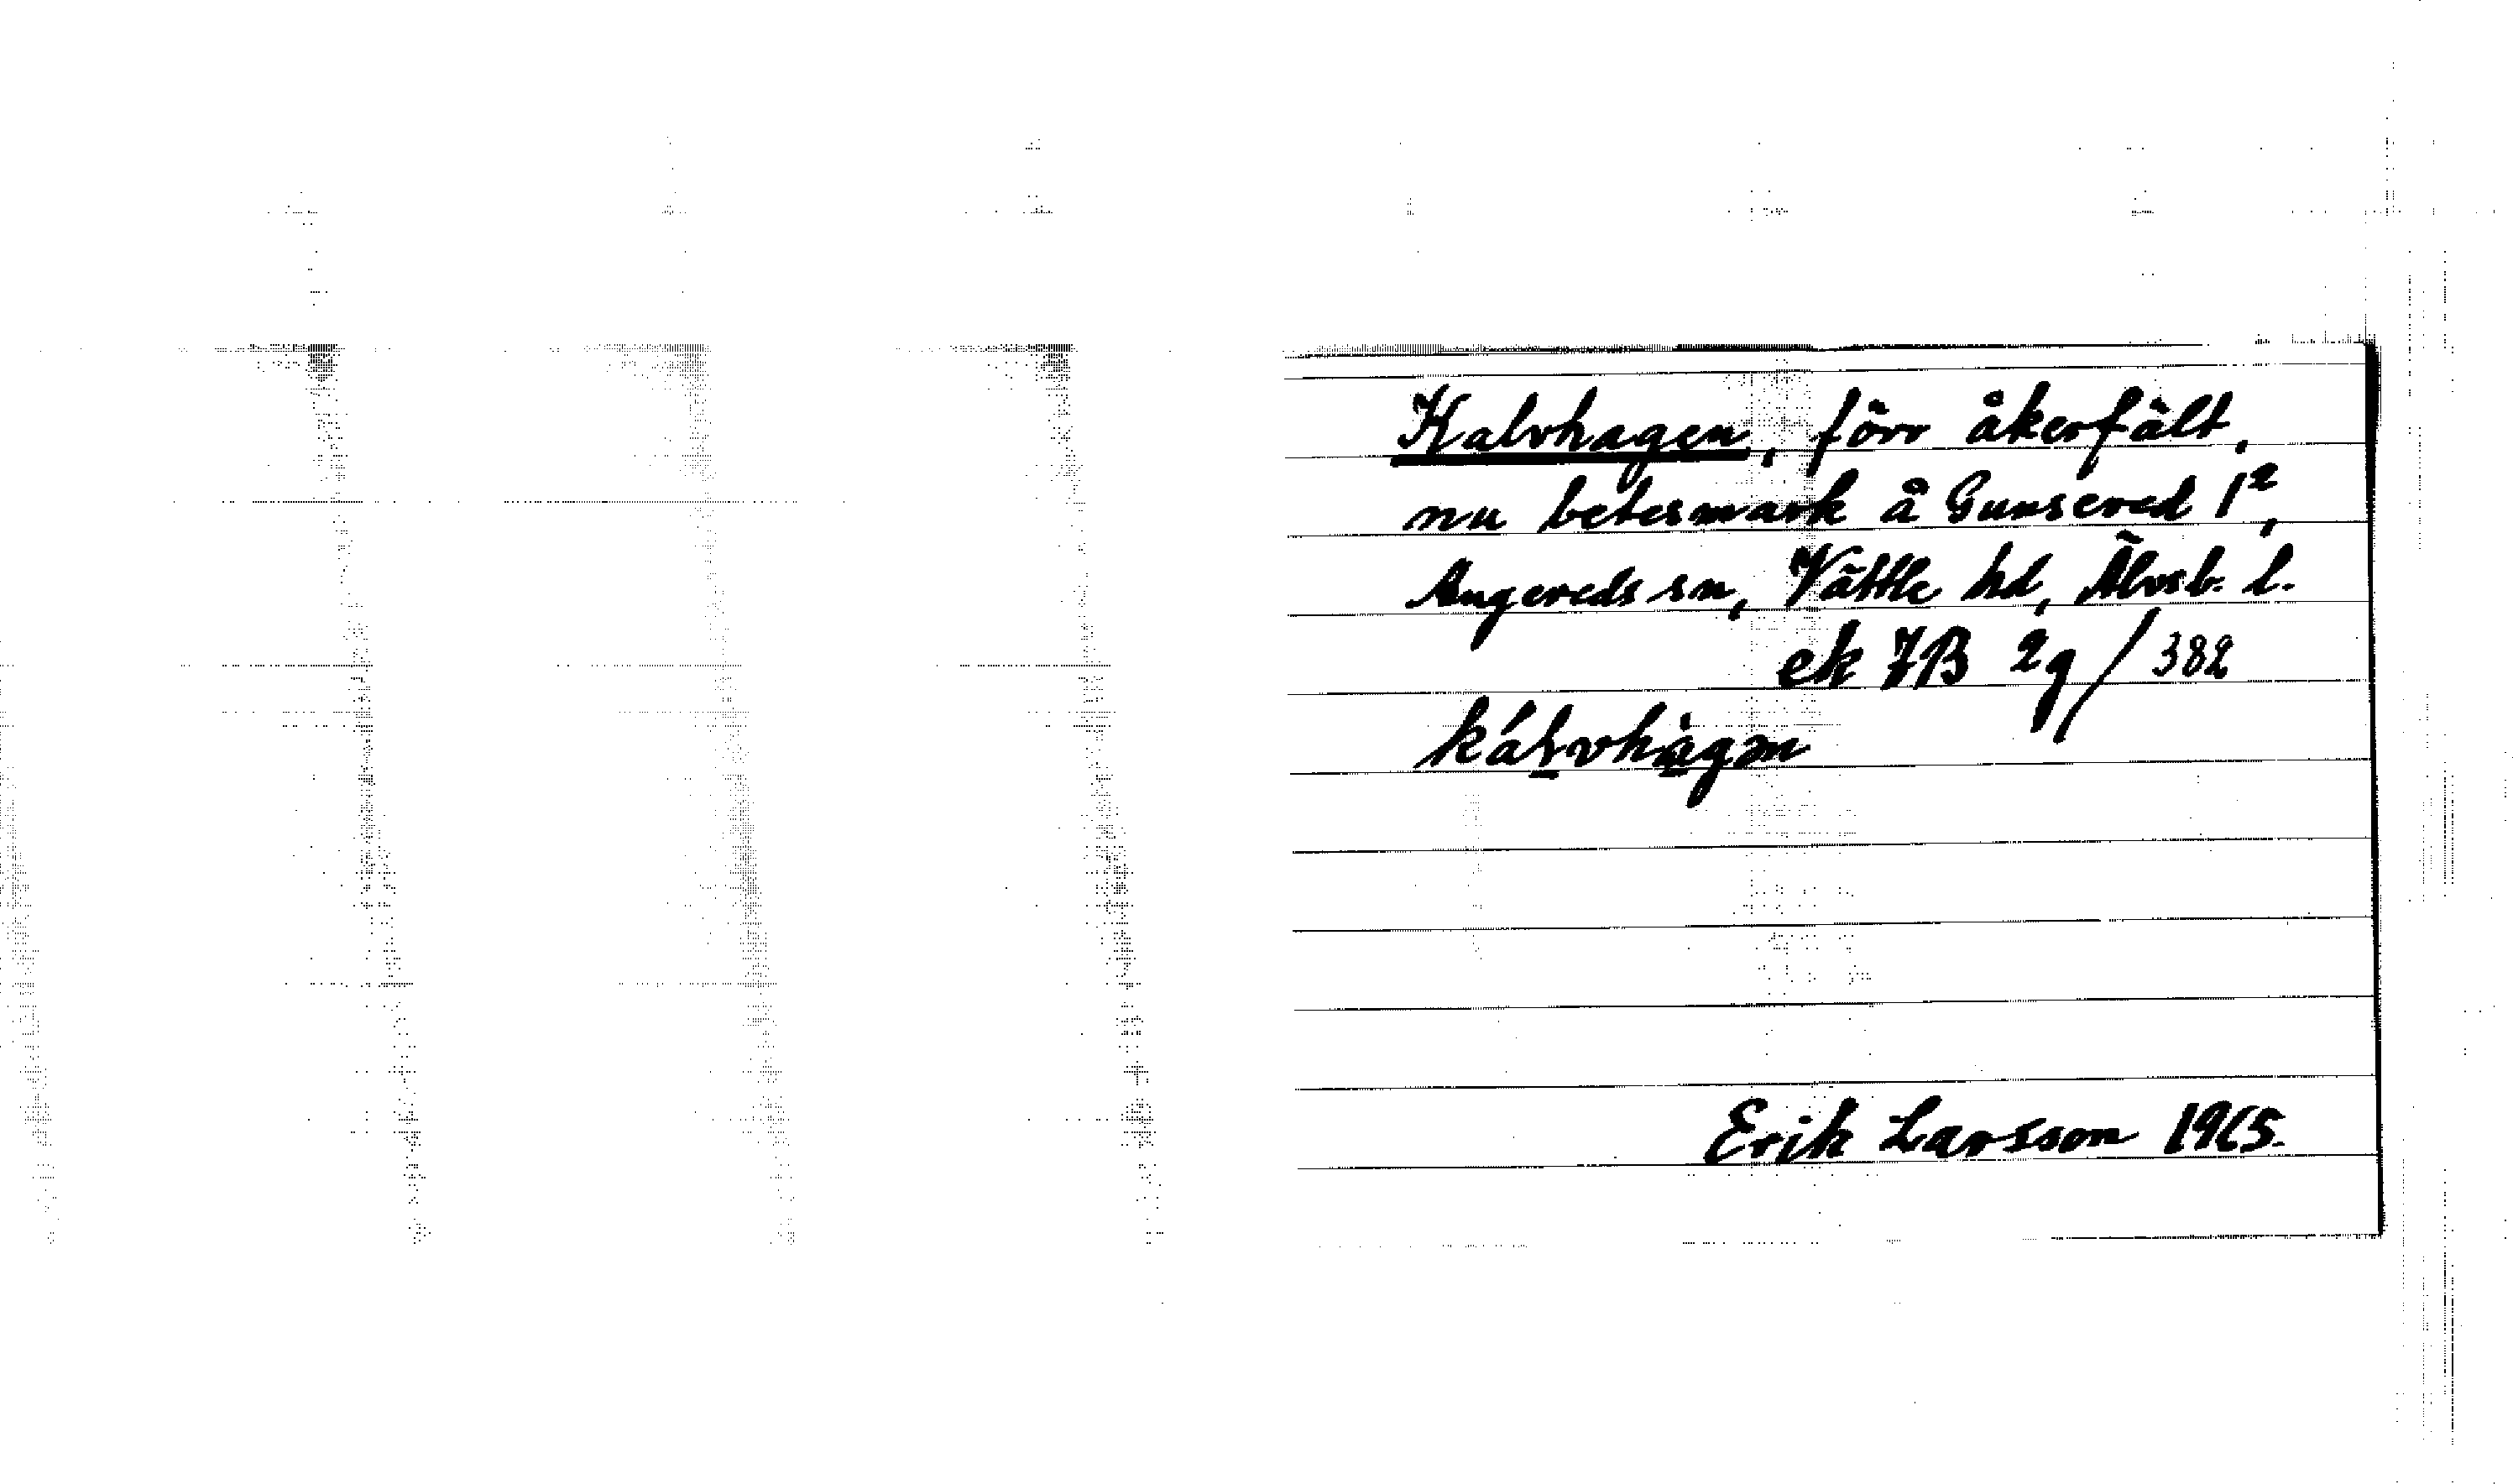 Kalvhagen, förr åkerfält,
nu betesmark å Gunsered 1²,
Angereds sn, Vättle hd, Älvsb. l.
ek 7B 2g / 382
Erik Larsson 1965.